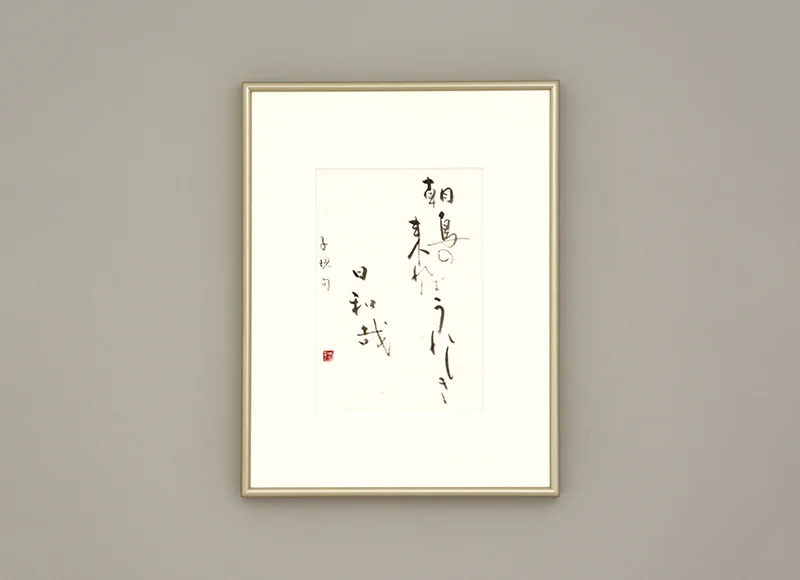 朝鳥の
来れば
うれしき
日和哉
子規句